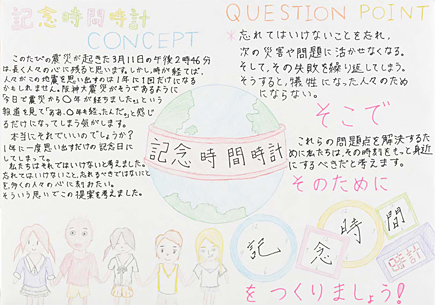 記念時間時計
CONCEPT
このたびの震災が起きた3月11日の午後2時46分
は、長く人々の心に残ると思います。しかし、時が経てば、
人々がこの地震を思い出すのは1年に1回だけになる
かもしれません。阪神大震災がそうであるように
今日で震災から〇年が経ちました。という
報道を見て「ああ、〇年経ったんだ。」と感じ
るだけになってしまう気がします。
本当にそれでいいのでしょうか?
1年に一度思い出すだけの記念日に
してしまって。
私たちはそれではいけないと考えました。
忘れてはいけないこと、忘れるべきではないこと
を、多くの人々の心に刻みたい。
そういう思いでこの提案を考えました。
QUESTION POINT
*忘れてはいけないことを忘れ、
次の災害や問題に活かせなくなる。
そして、その失敗を繰り返してしまう。
そうすると、犠牲になった人々のため
にならない。
そこで
これらの問題点を解決するた
めに私たちは、その時計をもっと身近
にするべきだと考えます。
そのために
記念時間時計
記念時間
時計
をつくりましょう!